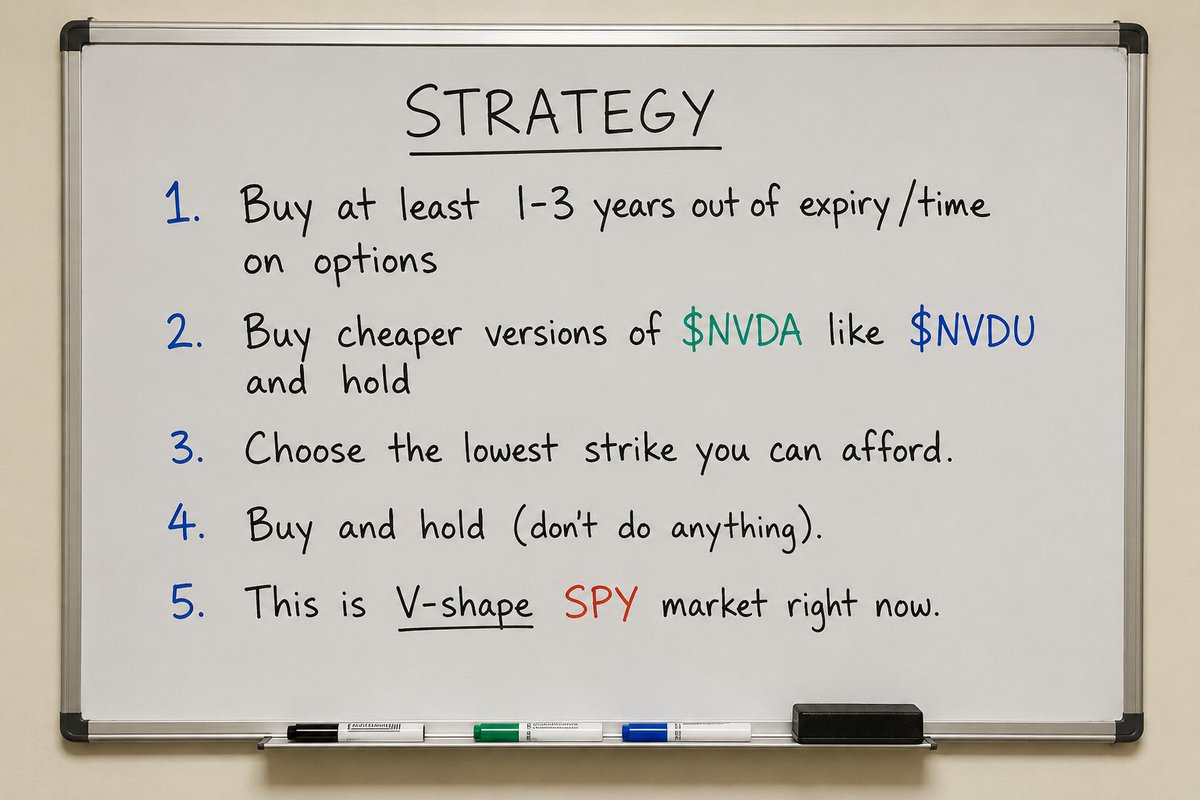 STRATEGY
1. Buy at least 1-3 years out of expiry/time
on options
2. Buy cheaper versions of $NVDA like $NVDU
and hold
3. Choose the lowest strike you can afford.
4. Buy and hold (don't do anything).
5. This is V-shape SPY market right now.